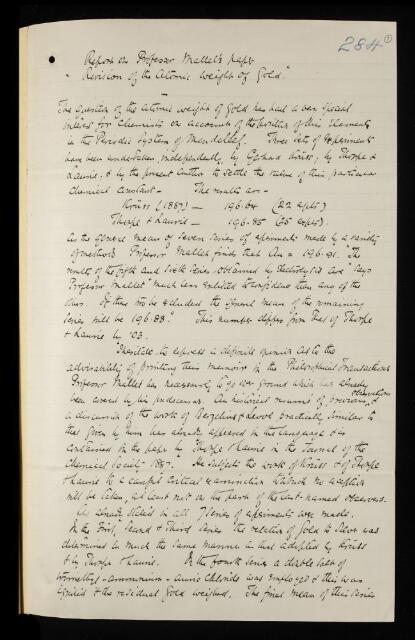 284 ①
Report on Professor Mallet's paper
"Revision of the Atomic Weight of Gold."
The question of the atomic weight of gold has had a very special
interest for Chemists on account of the position of this element
in the Periodic System of Mendeléef. Three sets of experiments
have been undertaken, independently, by Gerhard Krüss; by Thorpe &
Laurie; & by the present Author to settle the value of this particular
Chemical constant — The results are –
Krüss (1887) — 196.64 (22 expts)
Thorpe & Laurie — 196.85 (25 expts).
As the general mean of seven series of experiments made by a variety
of methods Professor Mallet finds that Au = 196.91. "The
results of the fifth and sixth series obtained by electrolysis are" says
Professor Mallet "much less entitled to confidence than any of the
others. If they be excluded the general mean of the remaining
series will be 196.83." This number differs from that of Thorpe
& Laurie by .02.
I hesitate to express a definite opinion as to the
advisability of printing this memoir in the Philosophical Transactions
Professor Mallet has necessarily to go over ground which has already
been covered by his predecessors. An historical résumé of previous observations &
a discussion of the work of Berzelius & Levol practically similar to
that given by him has already appeared in this language & is
contained in the paper by Thorpe & Laurie in the Journal of the
Chemical Society 1887. He subjects the work of Krüss & of Thorpe
& Laurie to a careful critical examination to which no exception
will be taken, at least not on the part of the last-named observers.
As already stated in all 7 series of experiments were made.
In the First, Second & Third Series the relation of Gold to Silver was
determined in much the same manner as that adopted by Krüss
& by Thorpe & Laurie. In the fourth series a double salt of
trimethyl-ammonium-auric chloride was employed & this was
ignited & the residual gold weighed. The final mean of this series